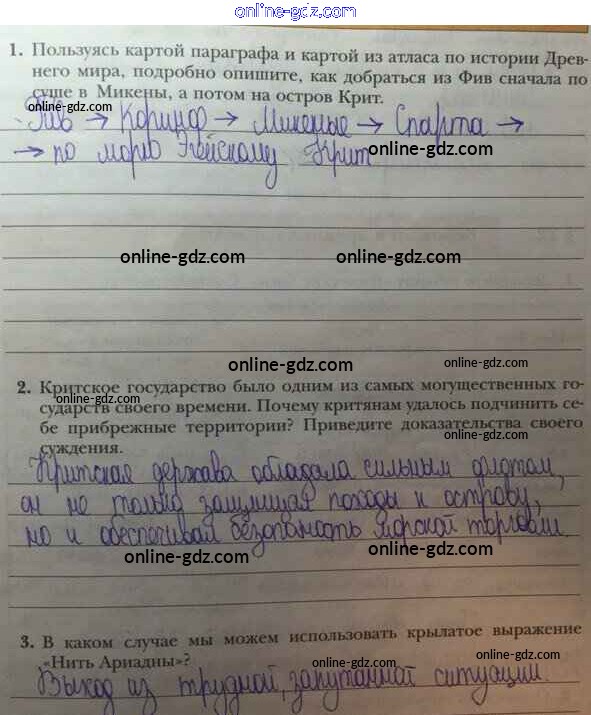 online-gdz.com
1. Пользуясь картой параграфа и картой из атласа по истории Древ-
него мира, подробно опишите, как добраться из Фив сначала по
суше в Микены, а потом на остров Крит.
online-gdz.com
Фив → Коринф → Микены → Спарта →
online-gdz.com
→ по морю Эгейскому Крит
online-gdz.com online-gdz.com
online-gdz.com online-gdz.com
2. Критское государство было одним из самых могущественных го-
online-gdz.com
сударств своего времени. Почему критянам удалось подчинить се-
бе прибрежные территории? Приведите доказательства своего
online-gdz.com
суждения.
Критская держава обладала сильным флотом,
он не только защищал походы к острову,
но и обеспечивал безопасность морской торговли.
online-gdz.com online-gdz.com
3. В каком случае мы можем использовать крылатое выражение
«Нить Ариадны»?
online-gdz.com online-gdz.com
Выход из трудной, запутанной ситуации.